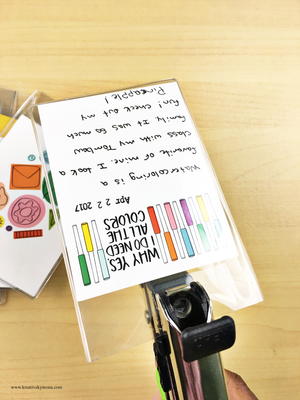 WHY YES
I DO NEED
ALL THE
COLORS
Apr 2 2 2017
Watercoloring is a
favorite of mine. I took a
class with my Tombow
family. It was so much
fun! Check out my
Pineapple!